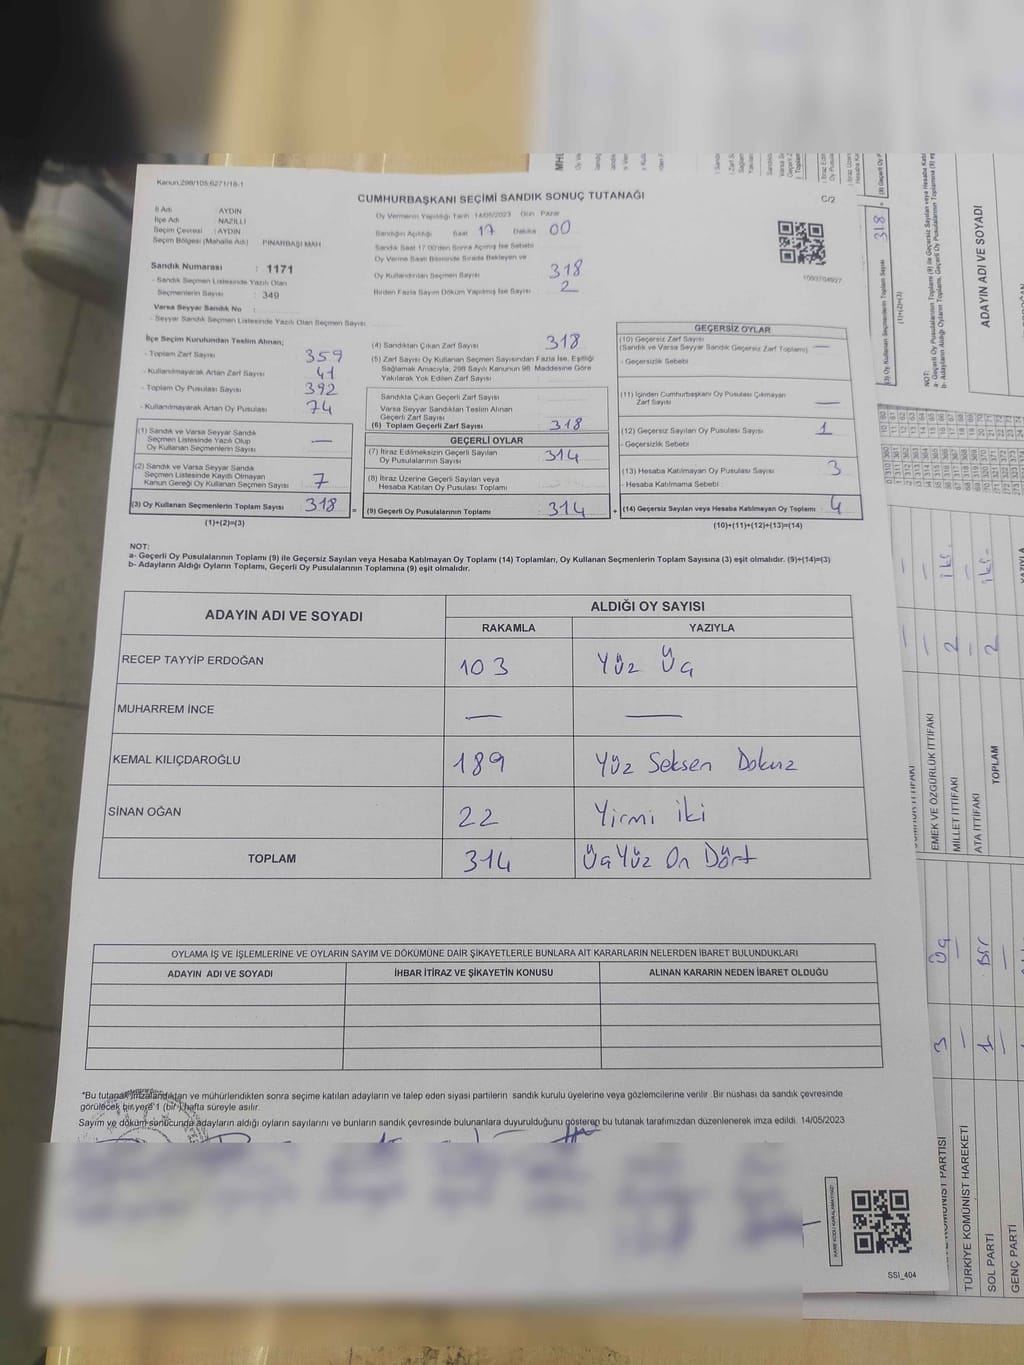 Kanun:298/105;6271/18-1
CUMHURBAŞKANI SEÇİMİ SANDIK SONUÇ TUTANAĞI
C/2
İl Adı : AYDIN
İlçe Adı : NAZİLLİ
Seçim Çevresi : AYDIN
Seçim Bölgesi (Mahalle Adı) PINARBAŞI MAH
Sandık Numarası : 1171
- Sandık Seçmen Listesinde Yazılı Olan
Seçmenlerin Sayısı : 349
Varsa Seyyar Sandık No :
- Seyyar Sandık Listesinde Yazılı Olan Seçmen Sayısı
Oy Vermenin Yapıldığı Tarih 14/05/2023 Gün Pazar
Sandığın Açıldığı Saat 17 Dakika 00
Sandık Saat 17:00'den Sonra Açılmış İse Sebebi
Oy Verme Saati Bitiminde Sırada Bekleyen ve
Oy Kullandırılan Seçmen Sayısı 318
Birden Fazla Sayım Döküm Yapılmış İse Sayısı 2
İlçe Seçim Kurulundan Teslim Alınan;
- Toplam Zarf Sayısı 359
- Kullanılmayarak Artan Zarf Sayısı 41
- Toplam Oy Pusulası Sayısı 392
- Kullanılmayarak Artan Oy Pusulası 74
(1) Sandık ve Varsa Seyyar Sandık
Seçmen Listesinde Yazılı Olup
Oy Kullanan Seçmenlerin Sayısı —
(2) Sandık ve Varsa Seyyar Sandık
Seçmen Listesinde Kayıtlı Olmayan
Kanun Gereği Oy Kullanan Seçmen Sayısı 7
(3) Oy Kullanan Seçmenlerin Toplam Sayısı 318
(1)+(2)=(3)
(4) Sandıktan Çıkan Zarf Sayısı 318
(5) Zarf Sayısı Oy Kullanan Seçmen Sayısından Fazla İse, Eşitliği
Sağlamak Amacıyla, 298 Sayılı Kanunun 98. Maddesine Göre
Yakılarak Yok Edilen Zarf Sayısı
Sandıkta Çıkan Geçerli Zarf Sayısı
Varsa Seyyar Sandıktan Teslim Alınan
Geçerli Zarf Sayısı
(6) Toplam Geçerli Zarf Sayısı 318
GEÇERLİ OYLAR
(7) İtiraz Edilmeksizin Geçerli Sayılan
Oy Pusulalarının Sayısı 314
(8) İtiraz Üzerine Geçerli Sayılan veya
Hesaba Katılan Oy Pusulalarının Toplamı
= (9) Geçerli Oy Pusulalarının Toplamı 314
GEÇERSİZ OYLAR
(10) Geçersiz Zarf Sayısı
(Sandık ve Varsa Seyyar Sandık Geçersiz Zarf Toplamı) —
- Geçersizlik Sebebi
(11) İçinden Cumhurbaşkanı Oy Pusulası Çıkmayan
Zarf Sayısı —
(12) Geçersiz Sayılan Oy Pusulası Sayısı 1
- Geçersizlik Sebebi
(13) Hesaba Katılmayan Oy Pusulası Sayısı 3
- Hesaba Katılmama Sebebi
+ (14) Geçersiz Sayılan veya Hesaba Katılmayan Oy Toplamı 4
(10)+(11)+(12)+(13)=(14)
NOT:
a- Geçerli Oy Pusulalarının Toplamı (9) ile Geçersiz Sayılan veya Hesaba Katılmayan Oy Toplamı (14) Toplamları, Oy Kullanan Seçmenlerin Toplam Sayısına (3) eşit olmalıdır. (9)+(14)=(3)
b- Adayların Aldığı Oyların Toplamı, Geçerli Oy Pusulalarının Toplamına (9) eşit olmalıdır.
ADAYIN ADI VE SOYADI ALDIĞI OY SAYISI
RAKAMLA YAZIYLA
RECEP TAYYİP ERDOĞAN 103 Yüz Üç
MUHARREM İNCE — —
KEMAL KILIÇDAROĞLU 189 Yüz Seksen Dokuz
SİNAN OĞAN 22 Yirmi iki
TOPLAM 314 ÜçYüz On Dört
OYLAMA İŞ VE İŞLEMLERİNE VE OYLARIN SAYIM VE DÖKÜMÜNE DAİR ŞİKAYETLERLE BUNLARA AİT KARARLARIN NELERDEN İBARET BULUNDUKLARI
ADAYIN ADI VE SOYADI İHBAR İTİRAZ VE ŞİKAYETİN KONUSU ALINAN KARARIN NEDEN İBARET OLDUĞU
*Bu tutanak imzalandıktan ve mühürlendikten sonra seçime katılan adayların ve talep eden siyasi partilerin sandık kurulu üyelerine veya gözlemcilerine verilir. Bir nüshası da sandık çevresinde
görülecek bir yere 1 (bir) hafta süreyle asılır.
Sayım ve döküm sonucunda adayların aldığı oyların sayılarını ve bunların sandık çevresinde bulunanlara duyurulduğunu gösteren bu tutanak tarafımızdan düzenlenerek imza edildi. 14/05/2023
SSI_404
318
(1)+(2)=(3)
NOT:
ADAYIN ADI VE SOYADI
EMEK VE ÖZGÜRLÜK İTTİFAKI
MİLLET İTTİFAKI 2 iki
ATA İTTİFAKI
TOPLAM 2 iki
3 Üç
1 Bir
TÜRKİYE KOMÜNİST HAREKETİ
SOL PARTİ
GENÇ PARTİ